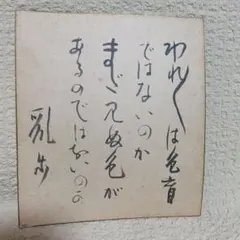 われ〱は色盲
ではないのか
まだ見ぬ色が
あるのではないのか
乱歩